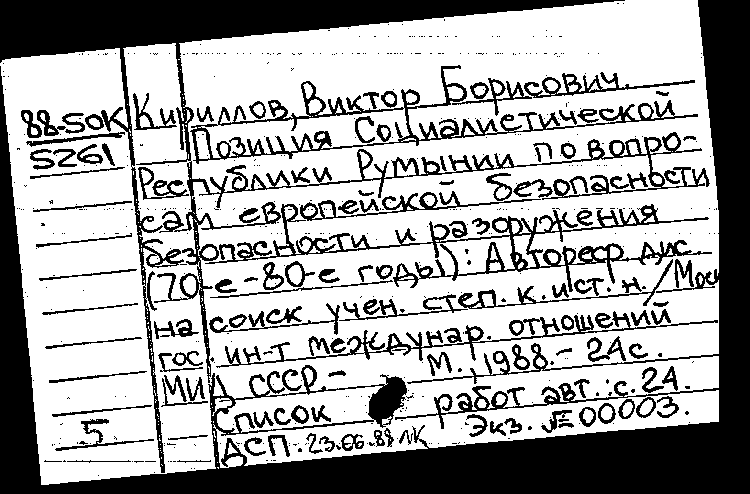 88-5OK Кириллов, Виктор Борисович.
5261 Позиция Социалистической
Республики Румынии по вопро-
сам европейской безопасности
безопасности и разоружения
(70-е-80-е годы): Автореф. дис.
на соиск. учен. степ. к.ист.н./Моск
гос. ин-т междунар. отношений
МИД СССР.- М., 1988.- 24с.
Список работ авт.:с.24.
5 ДСП. 23.06.88 ЛК Экз. № 00003.